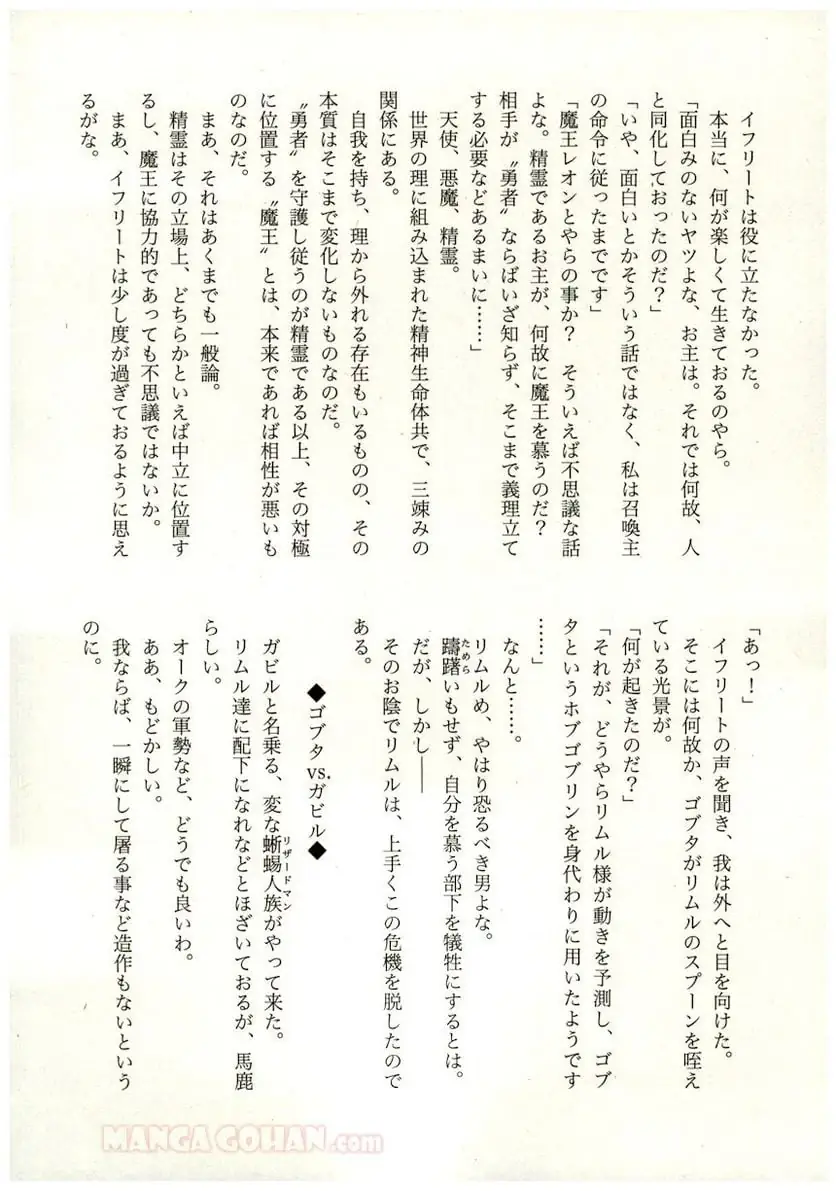 イフリートは役に立たなかった。
本当に、何が楽しくて生きておるのやら。
「面白みのないヤツよな、お主は。それでは何故、人
と同化しておったのだ？」
「いや、面白いとかそういう話ではなく、私は召喚主
の命令に従ったまでです」
「魔王レオンとやらの事か？　そういえば不思議な話
よな。精霊であるお主が、何故に魔王を慕うのだ？
相手が〝勇者〟ならばいざ知らず、そこまで義理立て
する必要などあるまいに……」
天使、悪魔、精霊。
世界の理に組み込まれた精神生命体共で、三竦みの
関係にある。
自我を持ち、理から外れる存在もいるものの、その
本質はそこまで変化しないものなのだ。
〝勇者〟を守護し従うのが精霊である以上、その対極
に位置する〝魔王〟とは、本来であれば相性が悪いも
のなのだ。
まあ、それはあくまでも一般論。
精霊はその立場上、どちらかといえば中立に位置す
るし、魔王に協力的であっても不思議ではないか。
まあ、イフリートは少し度が過ぎておるように思え
るがな。
「あっ！」
イフリートの声を聞き、我は外へと目を向けた。
そこには何故か、ゴブタがリムルのスプーンを咥え
ている光景が。
「何が起きたのだ？」
「それが、どうやらリムル様が動きを予測し、ゴブ
タというホブゴブリンを身代わりに用いたようです
……」
なんと……。
リムルめ、やはり恐るべき男よな。
躊躇いもせず、自分を慕う部下を犠牲にするとは。
ためら
だが、しかし――
そのお陰でリムルは、上手くこの危機を脱したので
ある。
◆ゴブタvs.ガビル◆
ガビルと名乗る、変な蜥蜴人族がやって来た。
リザードマン
リムル達に配下になれなどとほざいておるが、馬鹿
らしい。
オークの軍勢など、どうでも良いわ。
ああ、もどかしい。
我ならば、一瞬にして屠る事など造作もないという
のに。
MANGAGOHAN.com